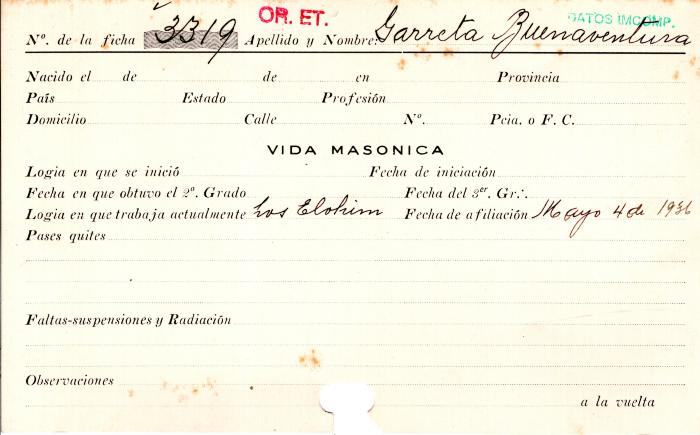 OR. ET. DATOS INCOMP.
Nº. de la ficha 3319 Apellido y Nombre: Garreta Buenaventura
Nacido el de de en Provincia
País Estado Profesión
Domicilio Calle Nº. Pcia. o F. C.
VIDA MASONICA
Logia en que se inició Fecha de iniciación
Fecha en que obtuvo el 2º. Grado Fecha del 3er. Gr∴
Logia en que trabaja actualmente Los Elohim Fecha de afiliación Mayo 4 de 1936
Pases quites
Faltas-suspensiones y Radiación
Observaciones
a la vuelta